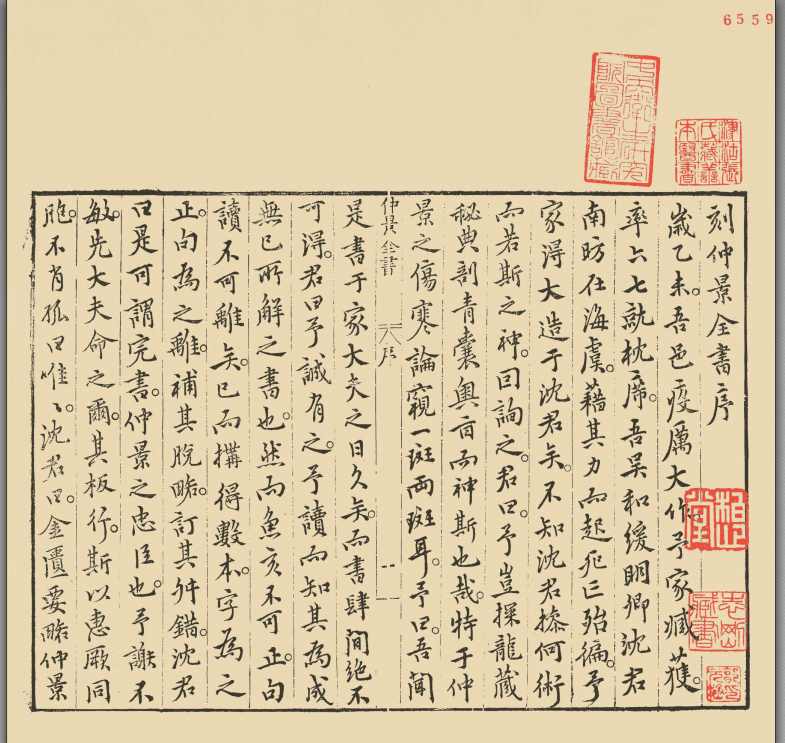 6559
刻仲景全書序
歲乙未。吾邑疫厲大作。予家臧獲。
率六七就枕席。吾吴和緩明卿沈君
南昉仕海虞。藉其力而起死亡殆徧。予
家得大造于沈君矣。不知沈君操何術
而若斯之神。因詢之。君曰。予豈探龍藏
秘典剖青囊奥㫖而神斯也哉。特于仲
景之傷寒論窺一斑兩斑耳。予曰。吾聞
仲景全書
序
一
是書于家大夫之日久矣。而書肆間絶不
可得。君曰予誠有之。予讀而知其為成
無已所解之書也。然而魚亥不可正。句
讀不可離矣。已而搆得數本。字為之
正。句為之離。補其脫略。訂其舛錯。沈君
曰是可謂完書。仲景之忠臣也。予謝不
敏。先大夫命之爾。其板行。斯以惠厥同
胞。不肖孤曰唯〻。沈君曰。金匱要略仲景
津沽張
氏藏善
本醫書